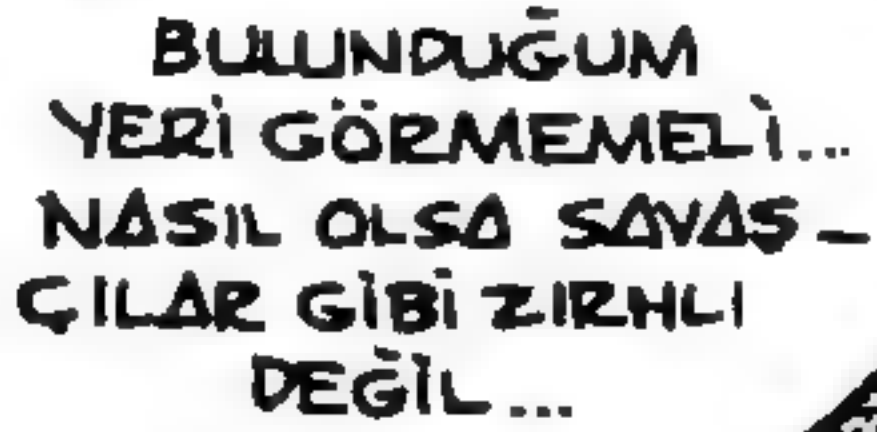 BULUNDUĞUM
YERİ GÖRMEMELİ...
NASIL OLSA SAVAŞ-
ÇILAR GİBİ ZIRHLI
DEĞİL...